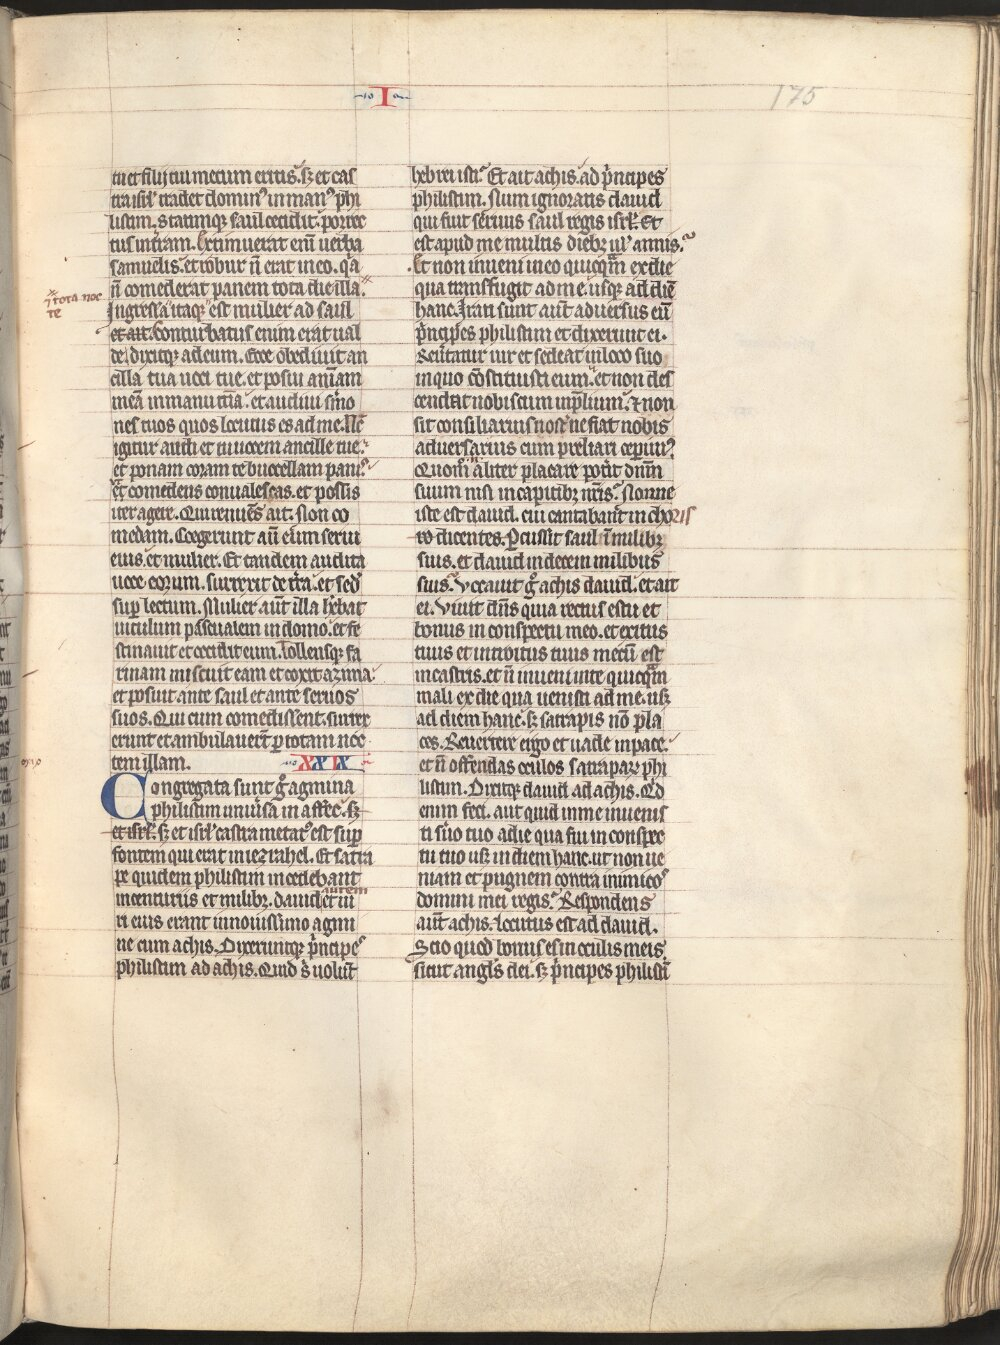 I
175
tu et filij tui mecum eritis. sꝫ et cas
tra isrl̓ tradet dominꝰ in manꝰ phi
listim. Statimqꝫ saul cecidit porrec
tus in t̓ram. Extimuerat eni̅ uerba
samuelis. et robur n̅ erat in eo. q̓a
n̅ comederat panem tota die illa.
⁊ tota noc
te
Ingressa itaqꝫ est mulier ad saul
et ait. Conturbatus enim erat ual
de. dixitqꝫ ad eum. Ecce obediuit an
cilla tua uoci tue. et posui ani̅am
mea̅ in manu tua̅. et audiui s̓mo
nes tuos quos locutus es ad me. Nc̅
igitur audi et tu uocem ancille tue.
et ponam coram te buccellam panis.
et comedens conualescas. et possis
iter agere. Qui renue̅s ait. Non co
medam. Coegerunt aut̅ eum serui
eius et mulier. Et tandem audita
uoce eorum. surrexit de t̓ra. et sed̓
sup̱ lectum. Mulier aut̅ illa h̓ebat
uitulum pascualem in domo. et fe
stinauit et occidit eum. Tollensqꝫ fa
rinam miscuit eam et coxit azima.
et posuit ante saul et ante seruos
suos. Qui cum comedissent. surrex
erunt et ambulauer̅t ꝑ totam noc
tem illam. XXIX
Congregata sunt g̓ agmina
philistim uniu̓sa in affec. sꝫ
et isrl̓. sꝫ et isrl̓ castra metatꝰ est sup̱
fontem qui erat in iezrahel. Et satra
pe quidem philistim incedebant
autem
in centuriis et milibꝫ. dauid et ui
ri eius erant in nouissimo agmi
ne cum achis. Dixeruntqꝫ p̓ncipes
philistim ad achis. Quid s̓ uolu̅t
hebrei isti. Et ait achis. ad p̓ncipes
philistim. Num ignoratis dauid
qui fuit seruus saul regis isrl̓. Et
est apud me multis diebꝫ ul̓ annis.
Et non inueni in eo quicq̓m ex die
qua transfugit ad me. usqꝫ ad die̅
hanc. Irati sunt aut̅ aduersus eu̅
p̓ncipes philistim et dixerunt ei.
Reu̓tatur uir et sedeat in loco suo
in quo co̅stituisti eum. et non des
cendat nobiscum in p̓lium. ⁊ non
sit consiliarius nost̓ ne fiat nobis
aduersarius cum preliari ceperim̓.
Quom̅ aliter placare pot̓it dn̅m
suum nisi in capitibꝫ nr̅is. Nonne
iste est dauid. cui cantabant in choris
ro dicentes. Percussit saul i̅ milibꝫ
suis. et dauid in decem milibus
suis. Vocauit g̓ achis dauid. et ait
ei. Viuit dn̅s quia rectus es tu et
bonus in conspectu meo. et exitus
tuus et introitus tuus mecu̅ est
in castris. et n̅ inueni in te quicq̓m
mali ex die qua uenisti ad me. usꝫ
ad diem hanc. sꝫ satrapis no̅ pla
ces. Reuertere ergo et uade in pace.
et n̅ offendas oculos satrapaꝝ phi
listim. Dixitqꝫ dauid ad achis. Qd̓
enim feci. aut quid inme inuenis
ti s̓uo tuo a die qua fui in conspec
tu tuo usꝫ in diem hanc. ut non ue
niam et pugnem contra inimicos
domini mei regis. Respondens
aut̅ achis. locutus est ad dauid.
Scio quod bonus es in oculis meis
sicut angl̓s dei. sꝫ p̓ncipes philisti̅